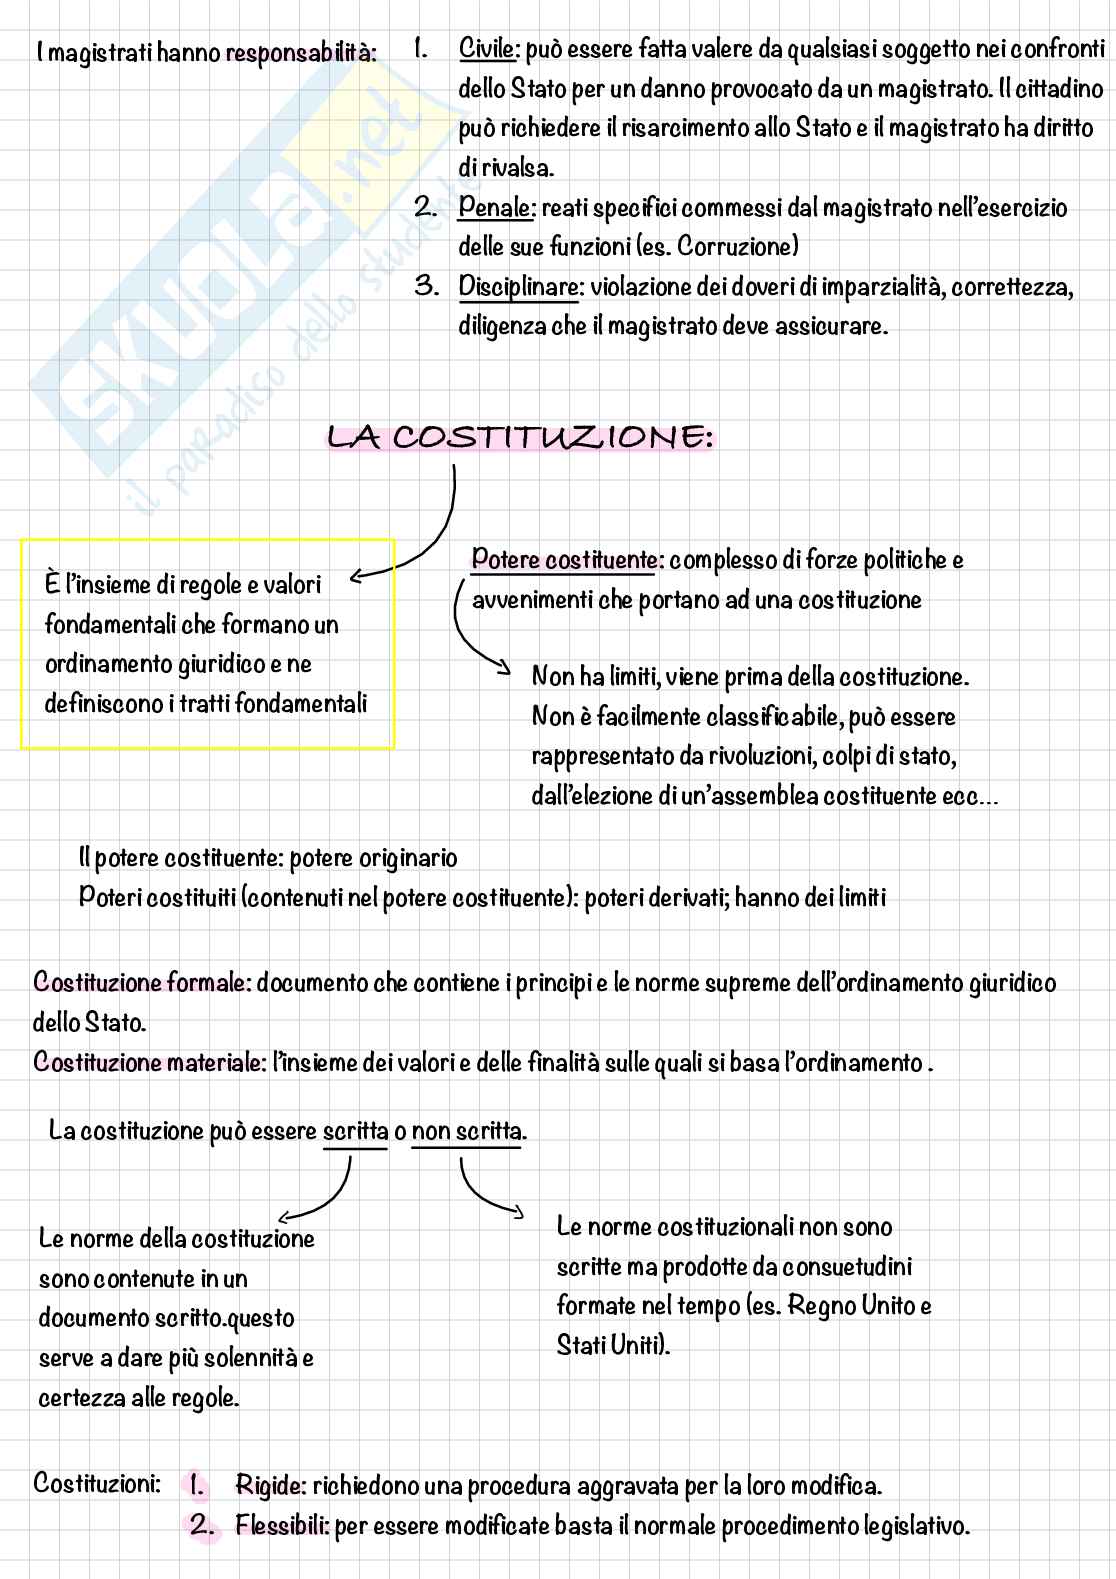 I magistrati hanno responsabilità:
1. Civile: può essere fatta valere da qualsiasi soggetto nei confronti
dello Stato per un danno provocato da un magistrato. Il cittadino
può richiedere il risarcimento allo Stato e il magistrato ha diritto
di rivalsa.
2. Penale: reati specifici commessi dal magistrato nell'esercizio
delle sue funzioni (es. Corruzione)
3. Disciplinare: violazione dei doveri di imparzialità, correttezza,
diligenza che il magistrato deve assicurare.
SKUOLA.net
il paradiso dello studente
LA COSTITUZIONE:
È l'insieme di regole e valori
fondamentali che formano un
ordinamento giuridico e ne
definiscono i tratti fondamentali
Potere costituente: complesso di forze politiche e
avvenimenti che portano ad una costituzione
Non ha limiti, viene prima della costituzione.
Non è facilmente classificabile, può essere
rappresentato da rivoluzioni, colpi di stato,
dall'elezione di un'assemblea costituente ecc...
Il potere costituente: potere originario
Poteri costituiti (contenuti nel potere costituente): poteri derivati; hanno dei limiti
Costituzione formale: documento che contiene i principi e le norme supreme dell'ordinamento giuridico
dello Stato.
Costituzione materiale: l'insieme dei valori e delle finalità sulle quali si basa l'ordinamento .
La costituzione può essere scritta o non scritta.
Le norme della costituzione
sono contenute in un
documento scritto.questo
serve a dare più solennità e
certezza alle regole.
Le norme costituzionali non sono
scritte ma prodotte da consuetudini
formate nel tempo (es. Regno Unito e
Stati Uniti).
Costituzioni: 1. Rigide: richiedono una procedura aggravata per la loro modifica.
2. Flessibili: per essere modificate basta il normale procedimento legislativo.